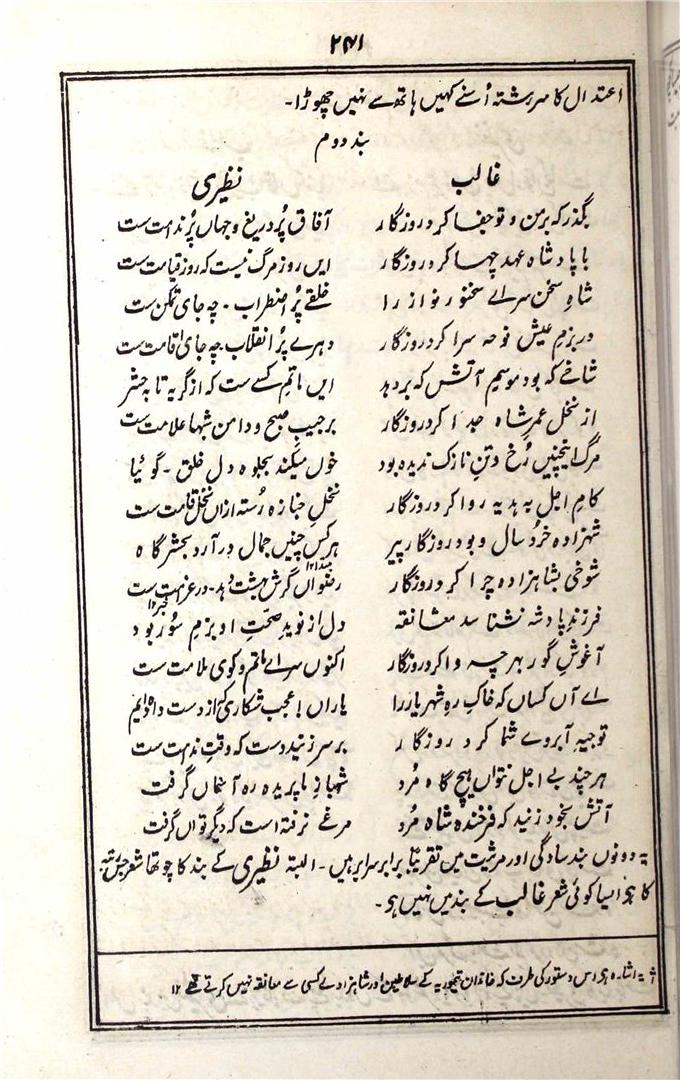 ۲۴۱
اعتدال کا سر رشتہ اُسنے کہیں ہاتھ سے نہیں چھوڑا۔
بند دوم
غالب
نظیری
بگذر کہ بر من و تو جفا کرد روزگار
آفاق پُر دریغ و جہاں پُر ندامت ست
با پادشاہ عہد چہا کرد روزگار
ایں روز مرگ نیست کہ روز قیامت ست
شاہِ سخن سراے سخنور نواز را
خلقے پُر اضطراب۔ چہ جای تمکن ست
در بزم عیش نوحہ سرا کرد روزگار
دہرے پُر انقلاب۔ چہ جای اقامت ست
شاخے کہ بود موسمِ آتش کہ بر دہد
ایں ماتم کسے ست کہ از گریہ تا بہ حشر
از نخل عمرِ شاہ جدا کرد روزگار
بر جیبِ صبح و دامن شبہا علامت ست
مرگ اینچنیں رُخ و تنِ نازک ندیدہ بود
خوں میکند بجلوہ دل خلق۔ گوئیا
کامِ اجل بہ ہدیہ روا کرد روزگار
نخلِ جنازہ رُستہ ازاں نخل قامت ست
شہزادہ خرد سال و بود روزگار پیر
ہر کس چنیں جمال در آرد بحشر گاہ
شوخی بشاہزادہ چرا کرد روزگار
رضواں گرش بہشت دہد۔ در غرامت ست
فرزندِ پادشہ نشناسد معانقہ
دل از نوید صحتِ او بزمِ سُور بود
آغوشِ گور بہر چہ وا کرد روزگار
اکنوں سراے ماتم و کوی ملامت ست
اے آں کساں کہ خاکِ رہِ شہریار را
یاراں! عجب شکاری کہ از دست دادہ ایم
توجیہِ آبروے شما کرد روزگار
بر سر زنید دست کہ وقتِ ندامت ست
ہر چند بے اجل نتواں ہیچ گاہ مُرد
شہبازِ ما پریدہ رہ آسماں گرفت
آتش بخود زنید کہ فرخندہ شاہ مُرد
مرغے نرفتہ است کہ دیگر تواں گرفت
یہ دونوں بند سادگی اور مرثیت میں تقریباً برابر سرابر ہیں۔ البتہ نظیری کے بند کا چوتھا شعر جس رتبہ
کا ہو ایسا کوئی شعر غالب کے بند میں نہیں ہو۔
یہ اشارہ ہو اس دستور کی طرف کہ خاندان تیموریہ کے سلاطین اور شاہزادے کسی سے معانقہ نہیں کرتے تھے ۱۲